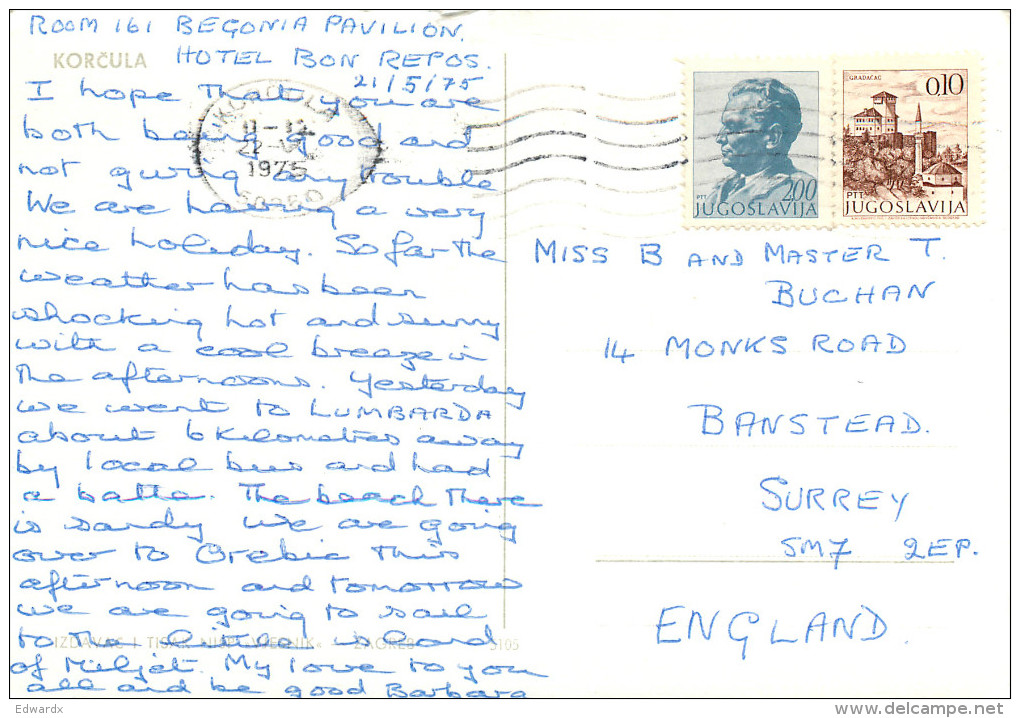 ROOM 161 BEGONIA PAVILION.
HOTEL BON REPOS.
KORČULA
21/5/75
I hope that you are
both being good and
not giving any trouble
We are having a very
nice holiday. So far the
weather has been
shocking hot and sunny
with a cool breeze in
the afternoons. Yesterday
we went to LUMBARDA
about 6 kilometres away
by local bus and had
a bathe. The beach there
is sandy we are going
over to Orebic this
afternoon and tomorrow
we are going to sail
to the little island
of Miljet. My love to you
all and be good Barbara
IZDAVAČ I TISAK NIŠP »VJESNIK« - ZAGREB
5105
11-12
1975
2,00
PTT
JUGOSLAVIJA
GRADAČAC
0,10
PTT
JUGOSLAVIJA
MISS B AND MASTER T.
BUCHAN
14 MONKS ROAD
BANSTEAD.
SURREY
SM7 2EP.
ENGLAND.
Edwardx
www.delcampe.net